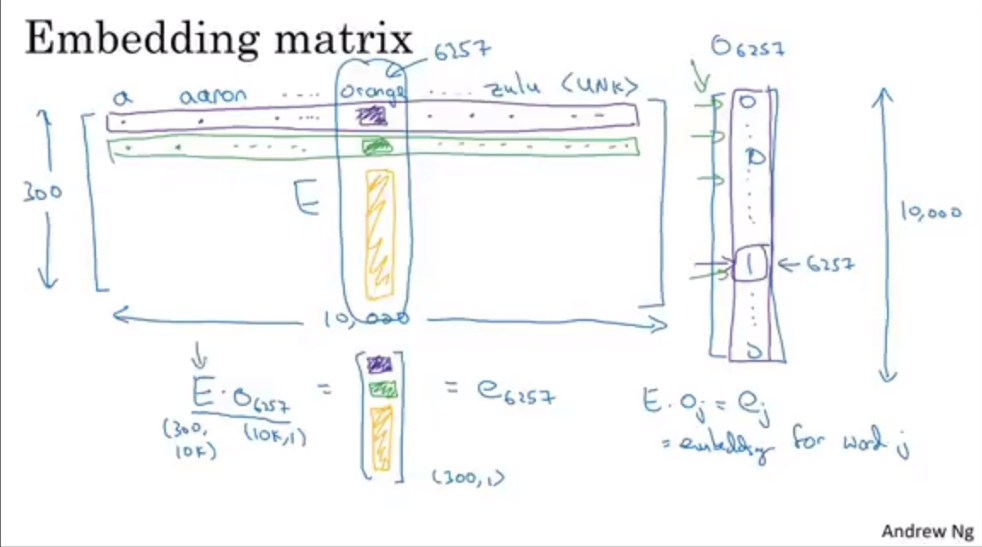 Embedding matrix
6257
O6257
a aaron ..... orange ..... zulu <UNK>
0
0
300
E
10,000
1
6257
10,000
0
E · O6257 = = e6257
(300, 10K) (10K,1)
(300,1)
E. Oj = ej
= embedding for word j
Andrew Ng